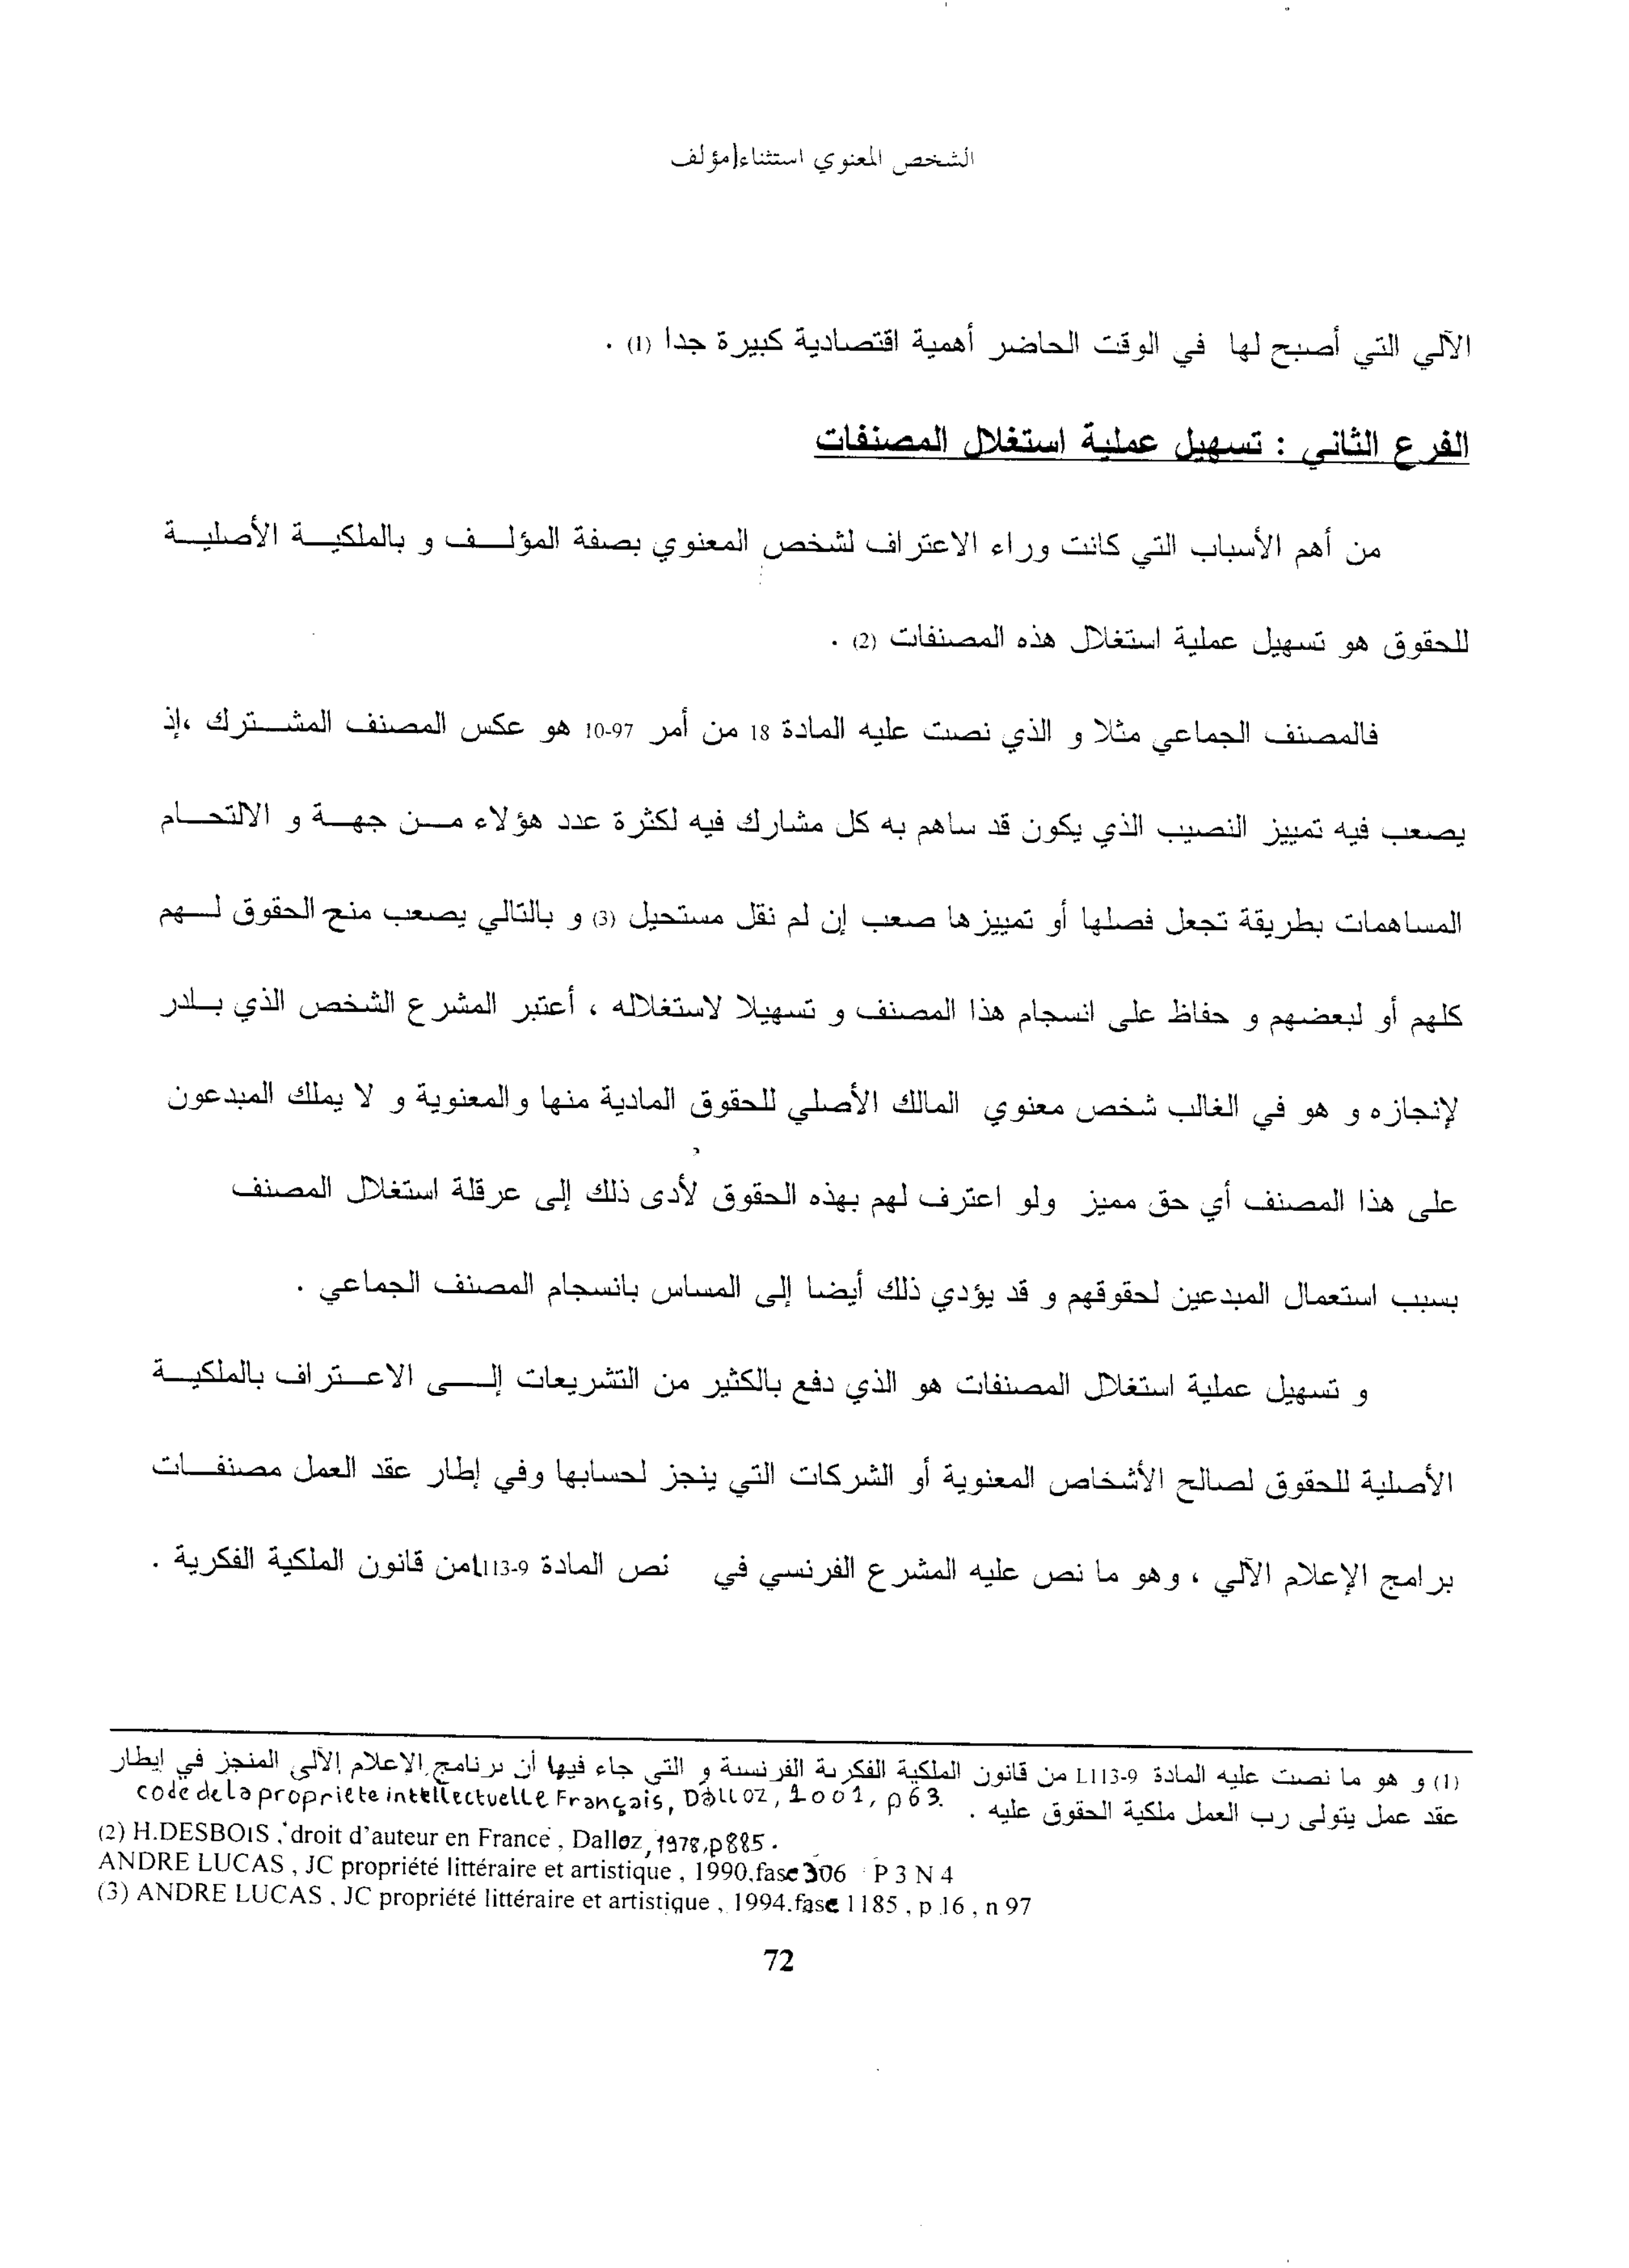 الشخص المعنوي استثناء[مؤلف
الآلي التي أصبح لها في الوقت الحاضر أهمية اقتصادية كبيرة جدا (1) .
الفرع الثاني : تسهيل عملية استغلال المصنفات
من أهم الأسباب التي كانت وراء الاعتراف لشخص المعنوي بصفة المؤلف و بالملكية الأصلية
للحقوق هو تسهيل عملية استغلال هذه المصنفات (2) .
فالمصنف الجماعي مثلا و الذي نصت عليه المادة 18 من أمر 97-10 هو عكس المصنف المشترك ،إذ
يصعب فيه تمييز النصيب الذي يكون قد ساهم به كل مشارك فيه لكثرة عدد هؤلاء من جهة و الالتحام
المساهمات بطريقة تجعل فصلها أو تمييزها صعب إن لم نقل مستحيل (3) و بالتالي يصعب منح الحقوق لهم
كلهم أو لبعضهم و حفاظ على انسجام هذا المصنف و تسهيلا لاستغلاله ، أعتبر المشرع الشخص الذي بادر
لإنجازه و هو في الغالب شخص معنوي المالك الأصلي للحقوق المادية منها والمعنوية و لا يملك المبدعون
على هذا المصنف أي حق مميز ولو اعترف لهم بهذه الحقوق لأدى ذلك إلى عرقلة استغلال المصنف
بسبب استعمال المبدعين لحقوقهم و قد يؤدي ذلك أيضا إلى المساس بانسجام المصنف الجماعي .
و تسهيل عملية استغلال المصنفات هو الذي دفع بالكثير من التشريعات إلى الاعتراف بالملكية
الأصلية للحقوق لصالح الأشخاص المعنوية أو الشركات التي ينجز لحسابها وفي إطار عقد العمل مصنفات
برامج الإعلام الآلي ، وهو ما نص عليه المشرع الفرنسي في نص المادة L113-9من قانون الملكية الفكرية .
(1) و هو ما نصت عليه المادة L113-9 من قانون الملكية الفكرية الفرنسية و التي جاء فيها أن برنامج الإعلام الآلي المنجز في إطار
عقد عمل يتولى رب العمل ملكية الحقوق عليه . code de la propriete intellectuelle Français, Dalloz, 2001, p63.
(2) H.DESBOIS , droit d'auteur en France , Dalloz, 1978,p885.
ANDRE LUCAS , JC propriété littéraire et artistique , 1990.fasc 306 P 3 N 4
(3) ANDRE LUCAS , JC propriété littéraire et artistique , 1994.fasc 1185 , p 16 , n 97
72